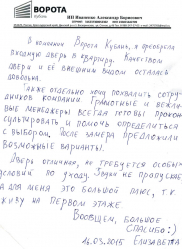 ВОРОТА
Кубани
ИП Иваненко Александр Борисович
В компании Ворота Кубани, я преобрела
входную дверь в квартиру. Качеством
двери и её внешним видом осталась
довольна.
Также отдельно хочу похвалить сотруд-
ников компании. Грамотные и вежли-
вые менеджеры всегда готовы прокон-
сультировать и помочь определиться
с выбором. После замера предложили
возможные варианты.
Дверь отличная, не требуется особых
условий по уходу. Звуки не пропускает
а для меня это большой плюс, т.к.
живу на первом этаже.
Вообщем, большое
спасибо!)
14.05.2015 Елизавета